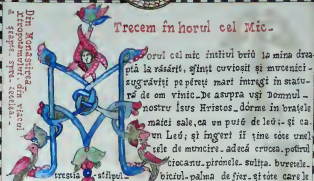 Din Monastirea
Xiropomenilor din viacul
a șeaptă spre zecelea.
Trecem în horul cel Mic.
orul cel mic întîiul brîu la mîna dreap
ptă la răsărit, sfinți cuvioși și mucenici
zugrăviți pe păreți mari întregi în statu
ră de om vinic. De asupra uși Domnul
nostru Isus Hristos, dorme în brațele
maici sale, ca un puiŭ de leŭ; și ca
un Leŭ; și îngeri îi ține tóte unel
tele de muncire, adecă crucea, potirul
ciocanu, pironele, sulița, buretele,
trestia stîlpul
biciul, palma de fier, și tóte care le